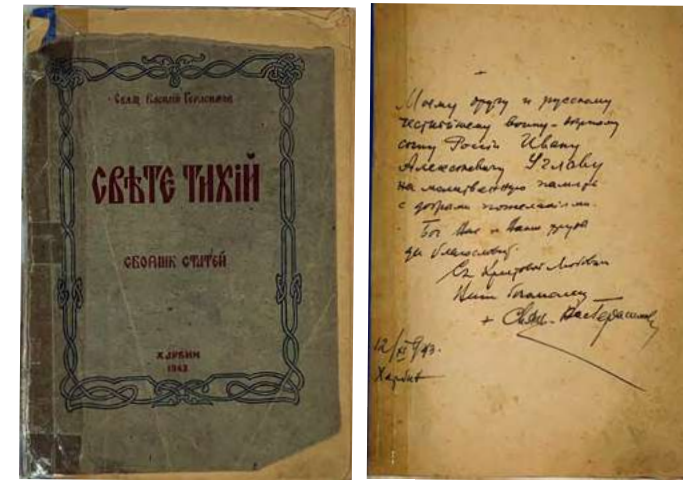 Свящ. Василий Герасимов
СВѢТЕ ТИХІЙ
СБОРНИК СТАТЕЙ
ХАРБИН
1943
Моему другу и русскому
честнѣйшему воину - вѣрному
сыну Россіи Ивану
Алексѣевичу Углову
на молитвенную память
с добрыми пожеланіями.
Бог Вас и Ваши труды
да благословит.
Съ Христовой Любовью
Ваш Богомолец
+ Свящ. Вас Герасимов
12/XI 43.
Харбин